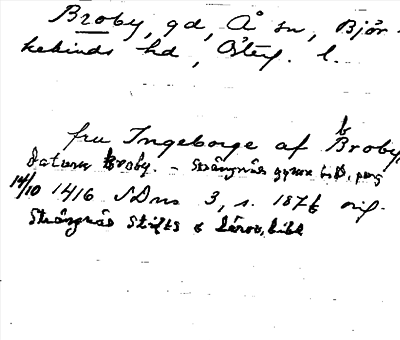 Broby, gd, Å sn, Björ-
kekinds hd, Östg. l.
fru Ingeborge af Broby
datum Broby. – Strängnäs gymn. bibl. perg
14/10 1416 SDns 3, s. 187 orig.
Strängnäs Stifts & Lärov. bibl